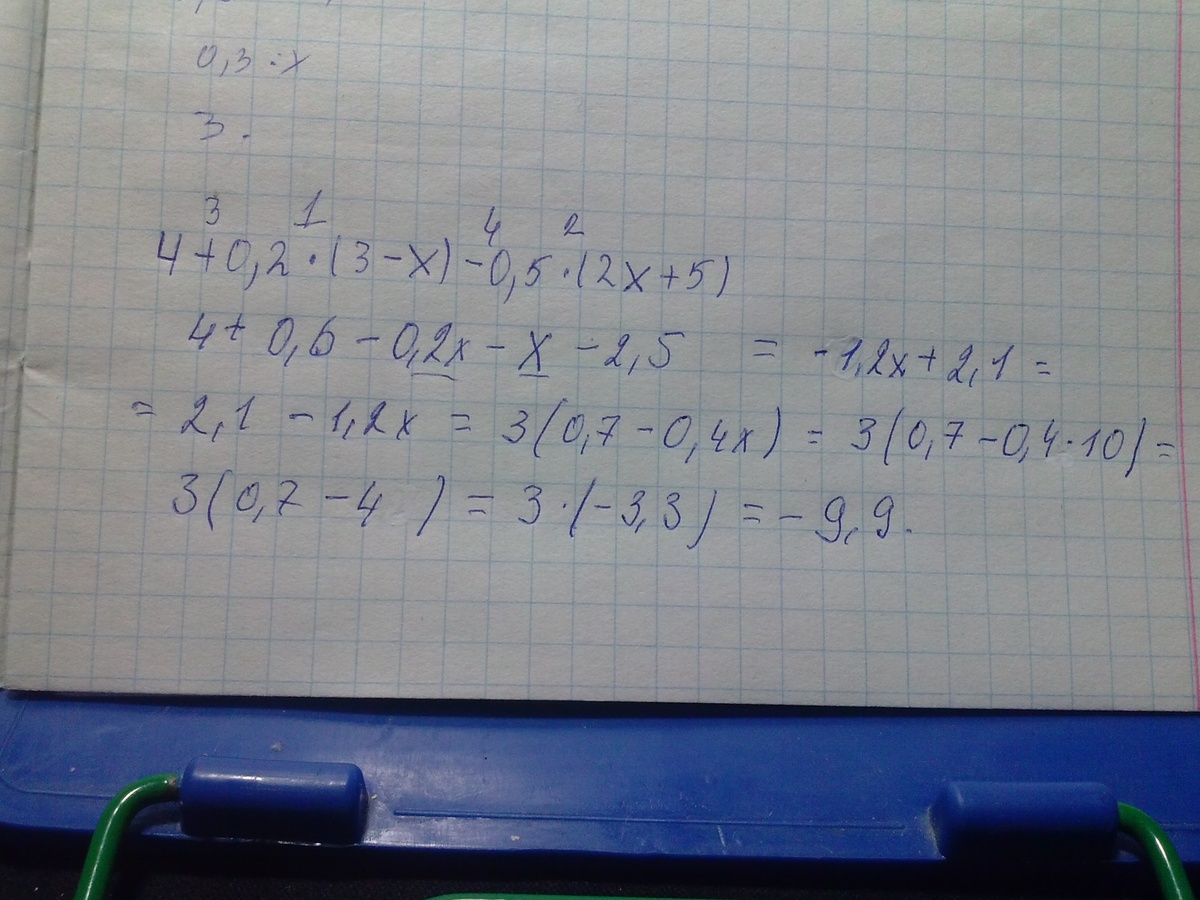 0,3 : x
3.
3 1 4 2
4+0,2·(3-x)-0,5·(2x+5)
4+ 0,6-0,2x-x-2,5 = -1,2x+2,1=
= 2,1 -1,2x = 3(0,7-0,4x) = 3(0,7-0,4·10)=
3(0,7-4 ) = 3·(-3,3) =-9,9.